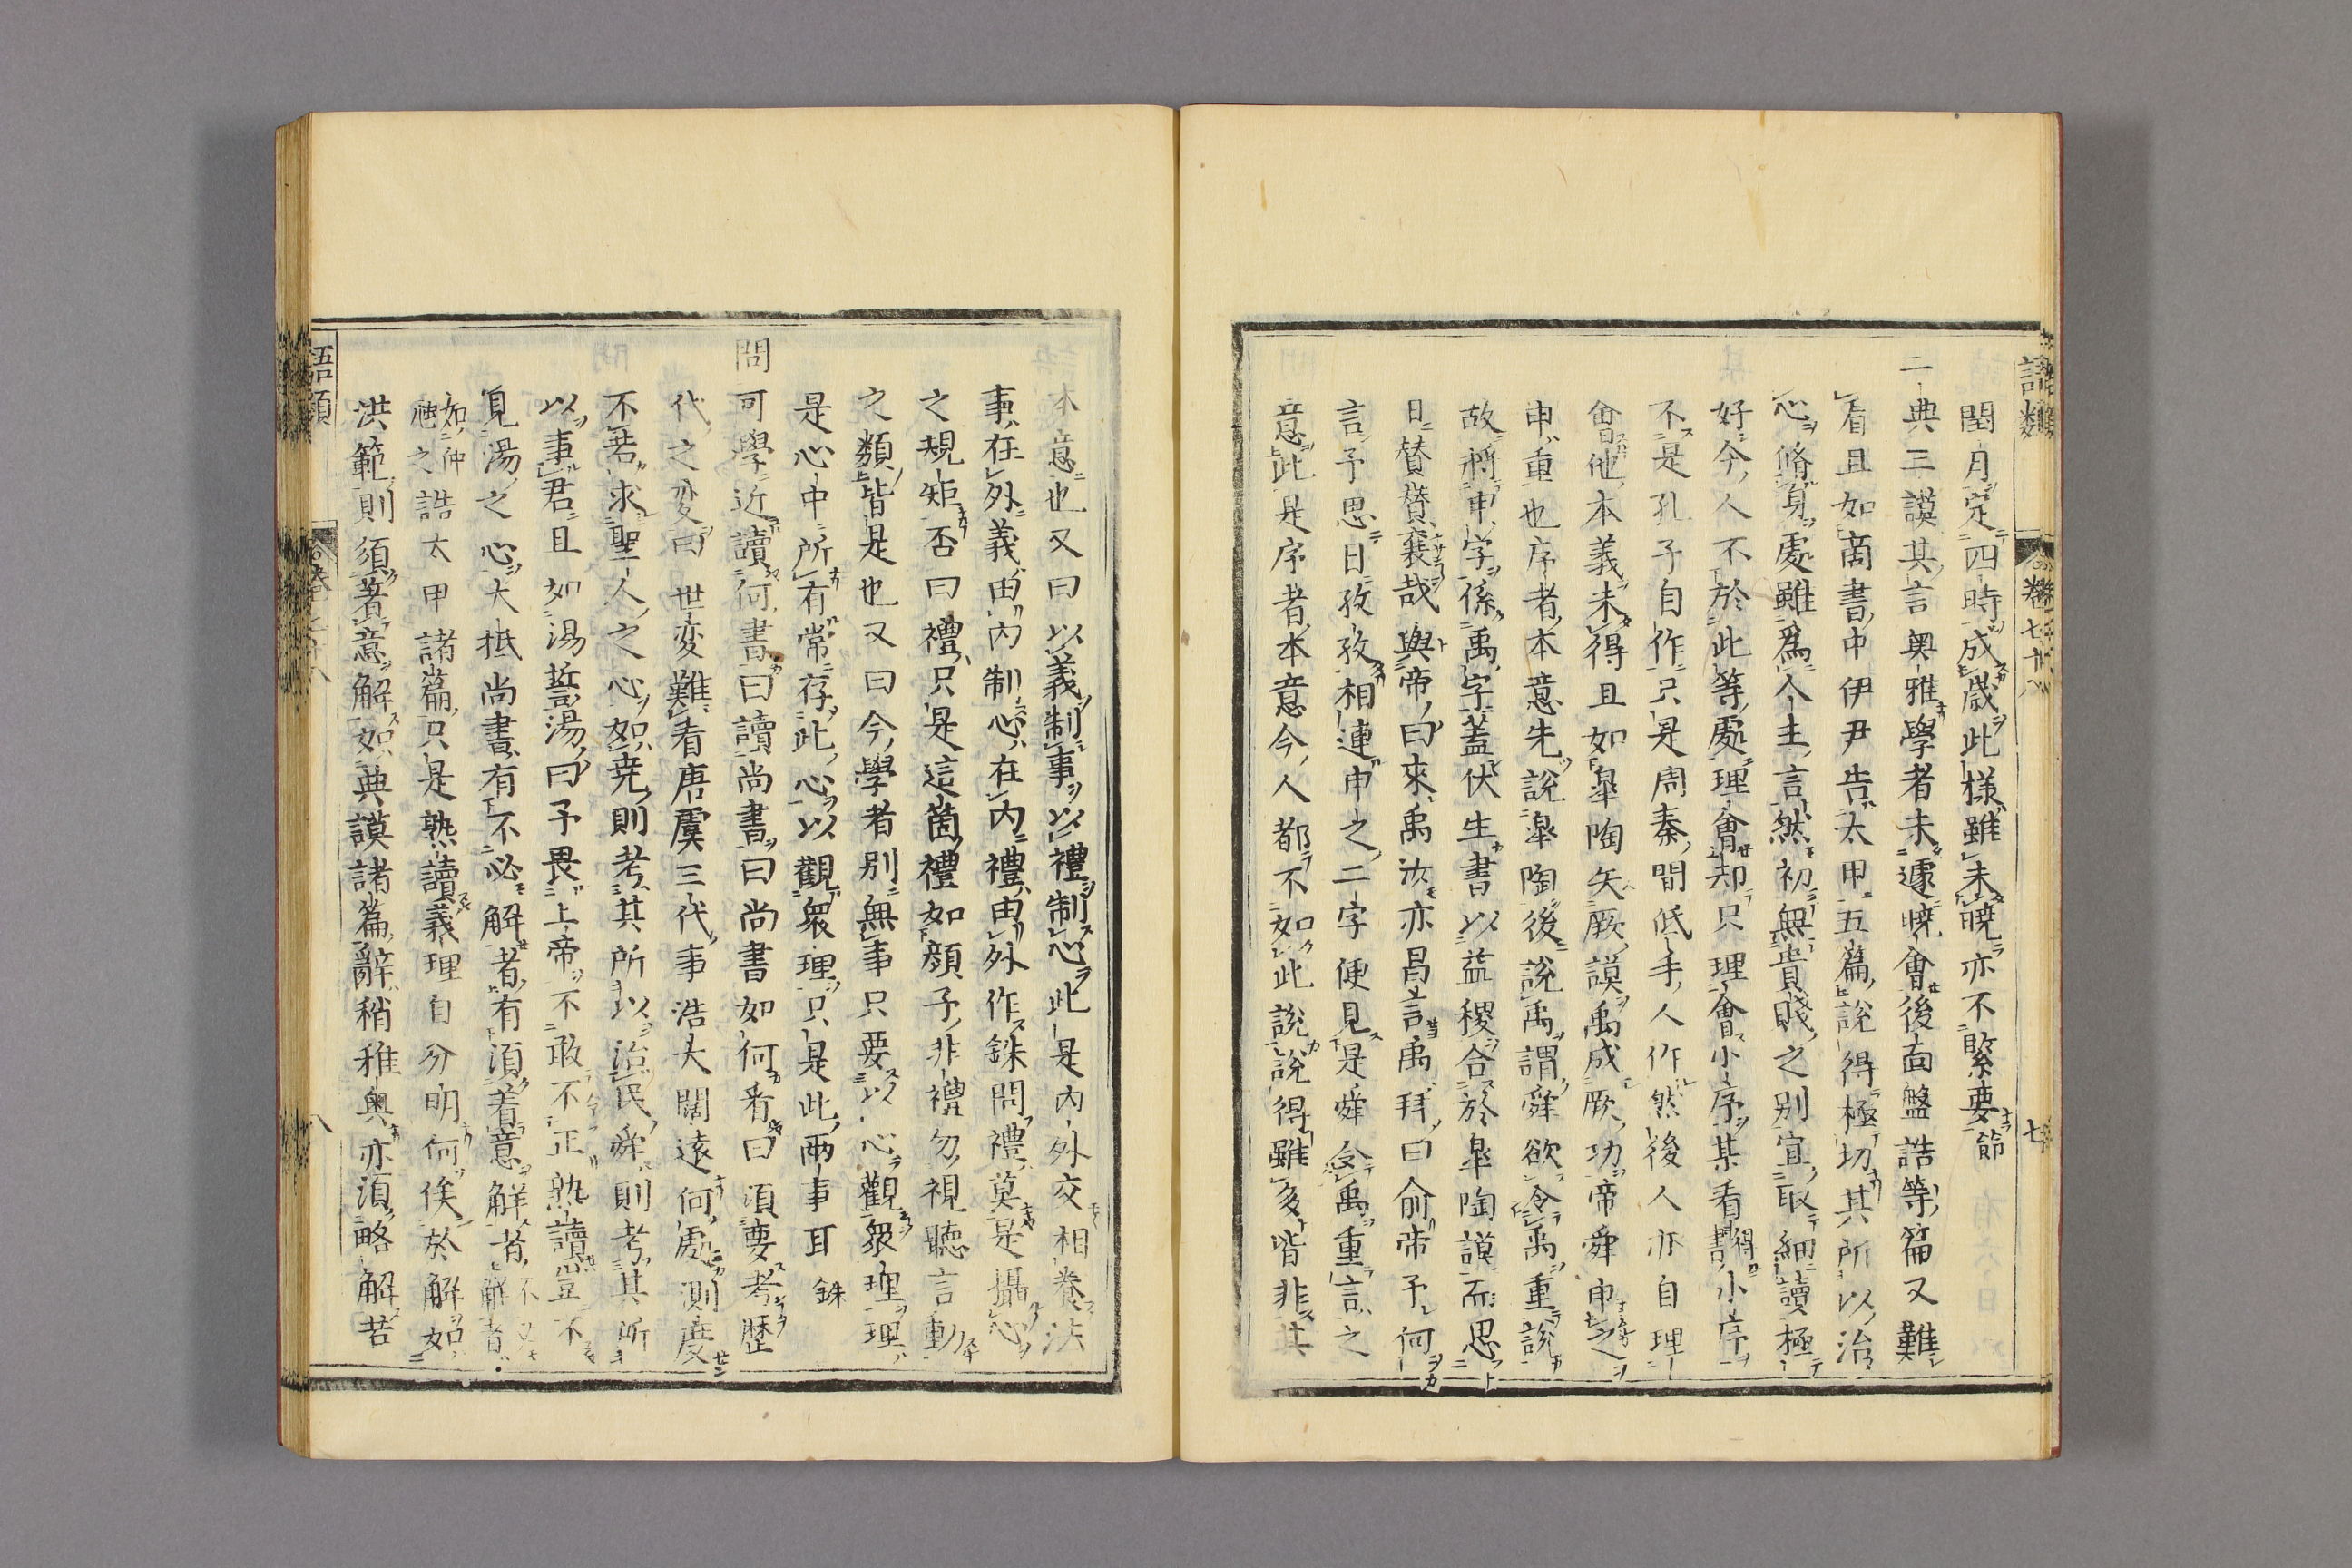 語類 卷七十八 七
閏月定四時成歳此樣雖未曉亦不緊要節
二典三謨其言奥雅學者未遽曉會後面盤誥等篇又難
看且如商書中伊尹告太甲五篇說得極切其所以治
心脩身處雖爲人主言然初無貴賤之别宜取細讀極
好今人不於此等處理會却只理會小序某看得書小序
不是孔子自作只是周秦間低手人作然後人亦自理
會他本義未得且如皐陶矢厥謨禹成厥功帝舜申之
申重也序者本意先說皐陶後說禹謂舜欲令禹重說
故將申字係禹字蓋伏生書以益稷合於皐陶謨而思
日賛賛襄哉與帝曰來禹汝亦昌言禹拜曰俞帝予何
言予思日孜孜相連申之二字便見是舜令禹重言之
意此是序者本意今人都不如此說說得雖多皆非其
本意也又曰以義制事以禮制心此是内外交相養法
事在外義由内制心在内禮由外作銖問禮莫是攝心
之規矩否曰禮只是這箇禮如顔子非禮勿視聽言動
之類皆是也又曰今學者别無事只要以心觀衆理理
是心中所有常存此心以觀衆理只是此兩事耳 銖
問可學近讀何書曰讀尚書曰尚書如何看曰須要考歴
代之変曰世変難看唐虞三代事浩大闊遠何處測度
不若求聖人之心如尭則考其所以治民舜則考其所
以事君且如湯誓湯曰予畏上帝不敢不正熟讀豈不
見湯之心大抵尚書有不必解者有須着意解者不必解者
如仲虺之誥太甲諸篇只是熟讀義理自分明何俟於解如
洪範則須著意解如典謨諸篇辭稍雅奥亦須略解若
語類 八